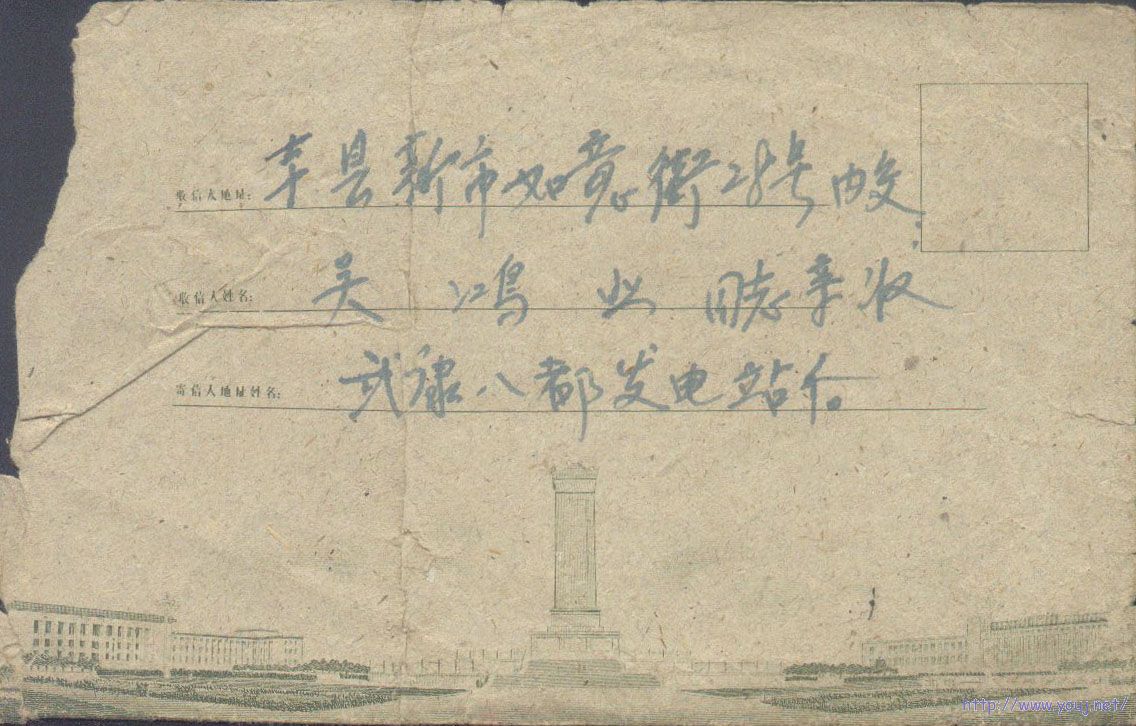 收信人地址: 本县新市如意街28号内交
收信人姓名: 吴鸿业同志亲收
寄信人地址姓名: 武康八都发电站合
http://www.youj.net/